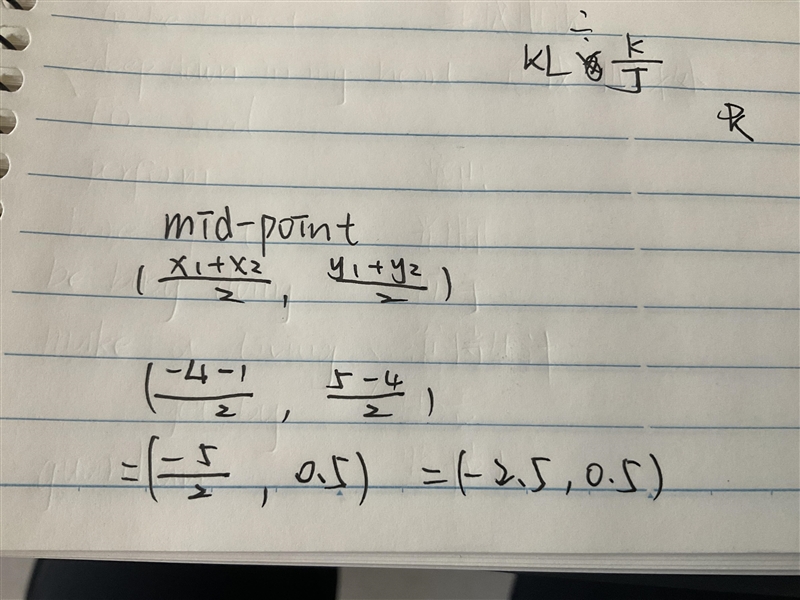 KL ÷ K/J
R
mid-point
( x1+x2/2 , y1+y2/2 )
( -4-1/2 , 5-4/2 )
= ( -5/2 , 0.5 ) = (-2.5, 0.5)